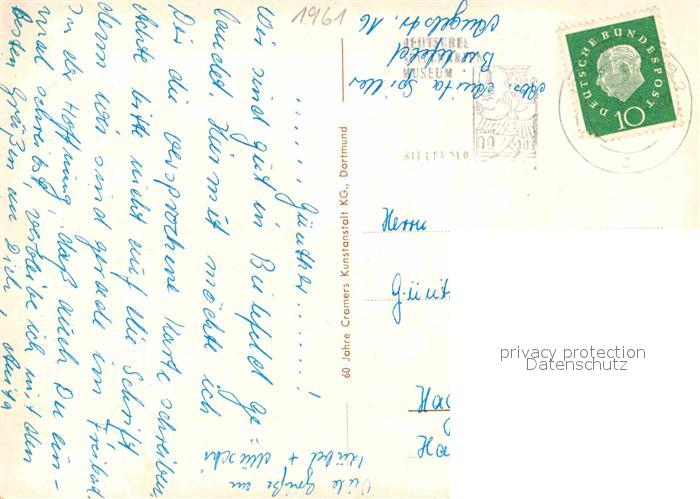 1961
...... Günther......!
Wir sind gut in Bielefeld ge=
landet. Hiermit möchte ich
Dir die versprochene Karte schreiben.
Achte bitte nicht auf die Schrift
denn wir sind gerade im Freibad.
In der Hoffnung, daß auch Du ein-
mal schreibst, verbleibe ich mit den
besten Grüßen an Dich, Anita
Viele Grüße
60 Jahre Cramers Kunstanstalt KG., Dortmund
Abs. Anita Spiller
Bielefeld
Str. 16
DEUTSCHES
MUSEUM
BIELEFELD
DEUTSCHE BUNDESPOST
10
Herrn
Günt
Hag
Ha
privacy protection
Datenschutz